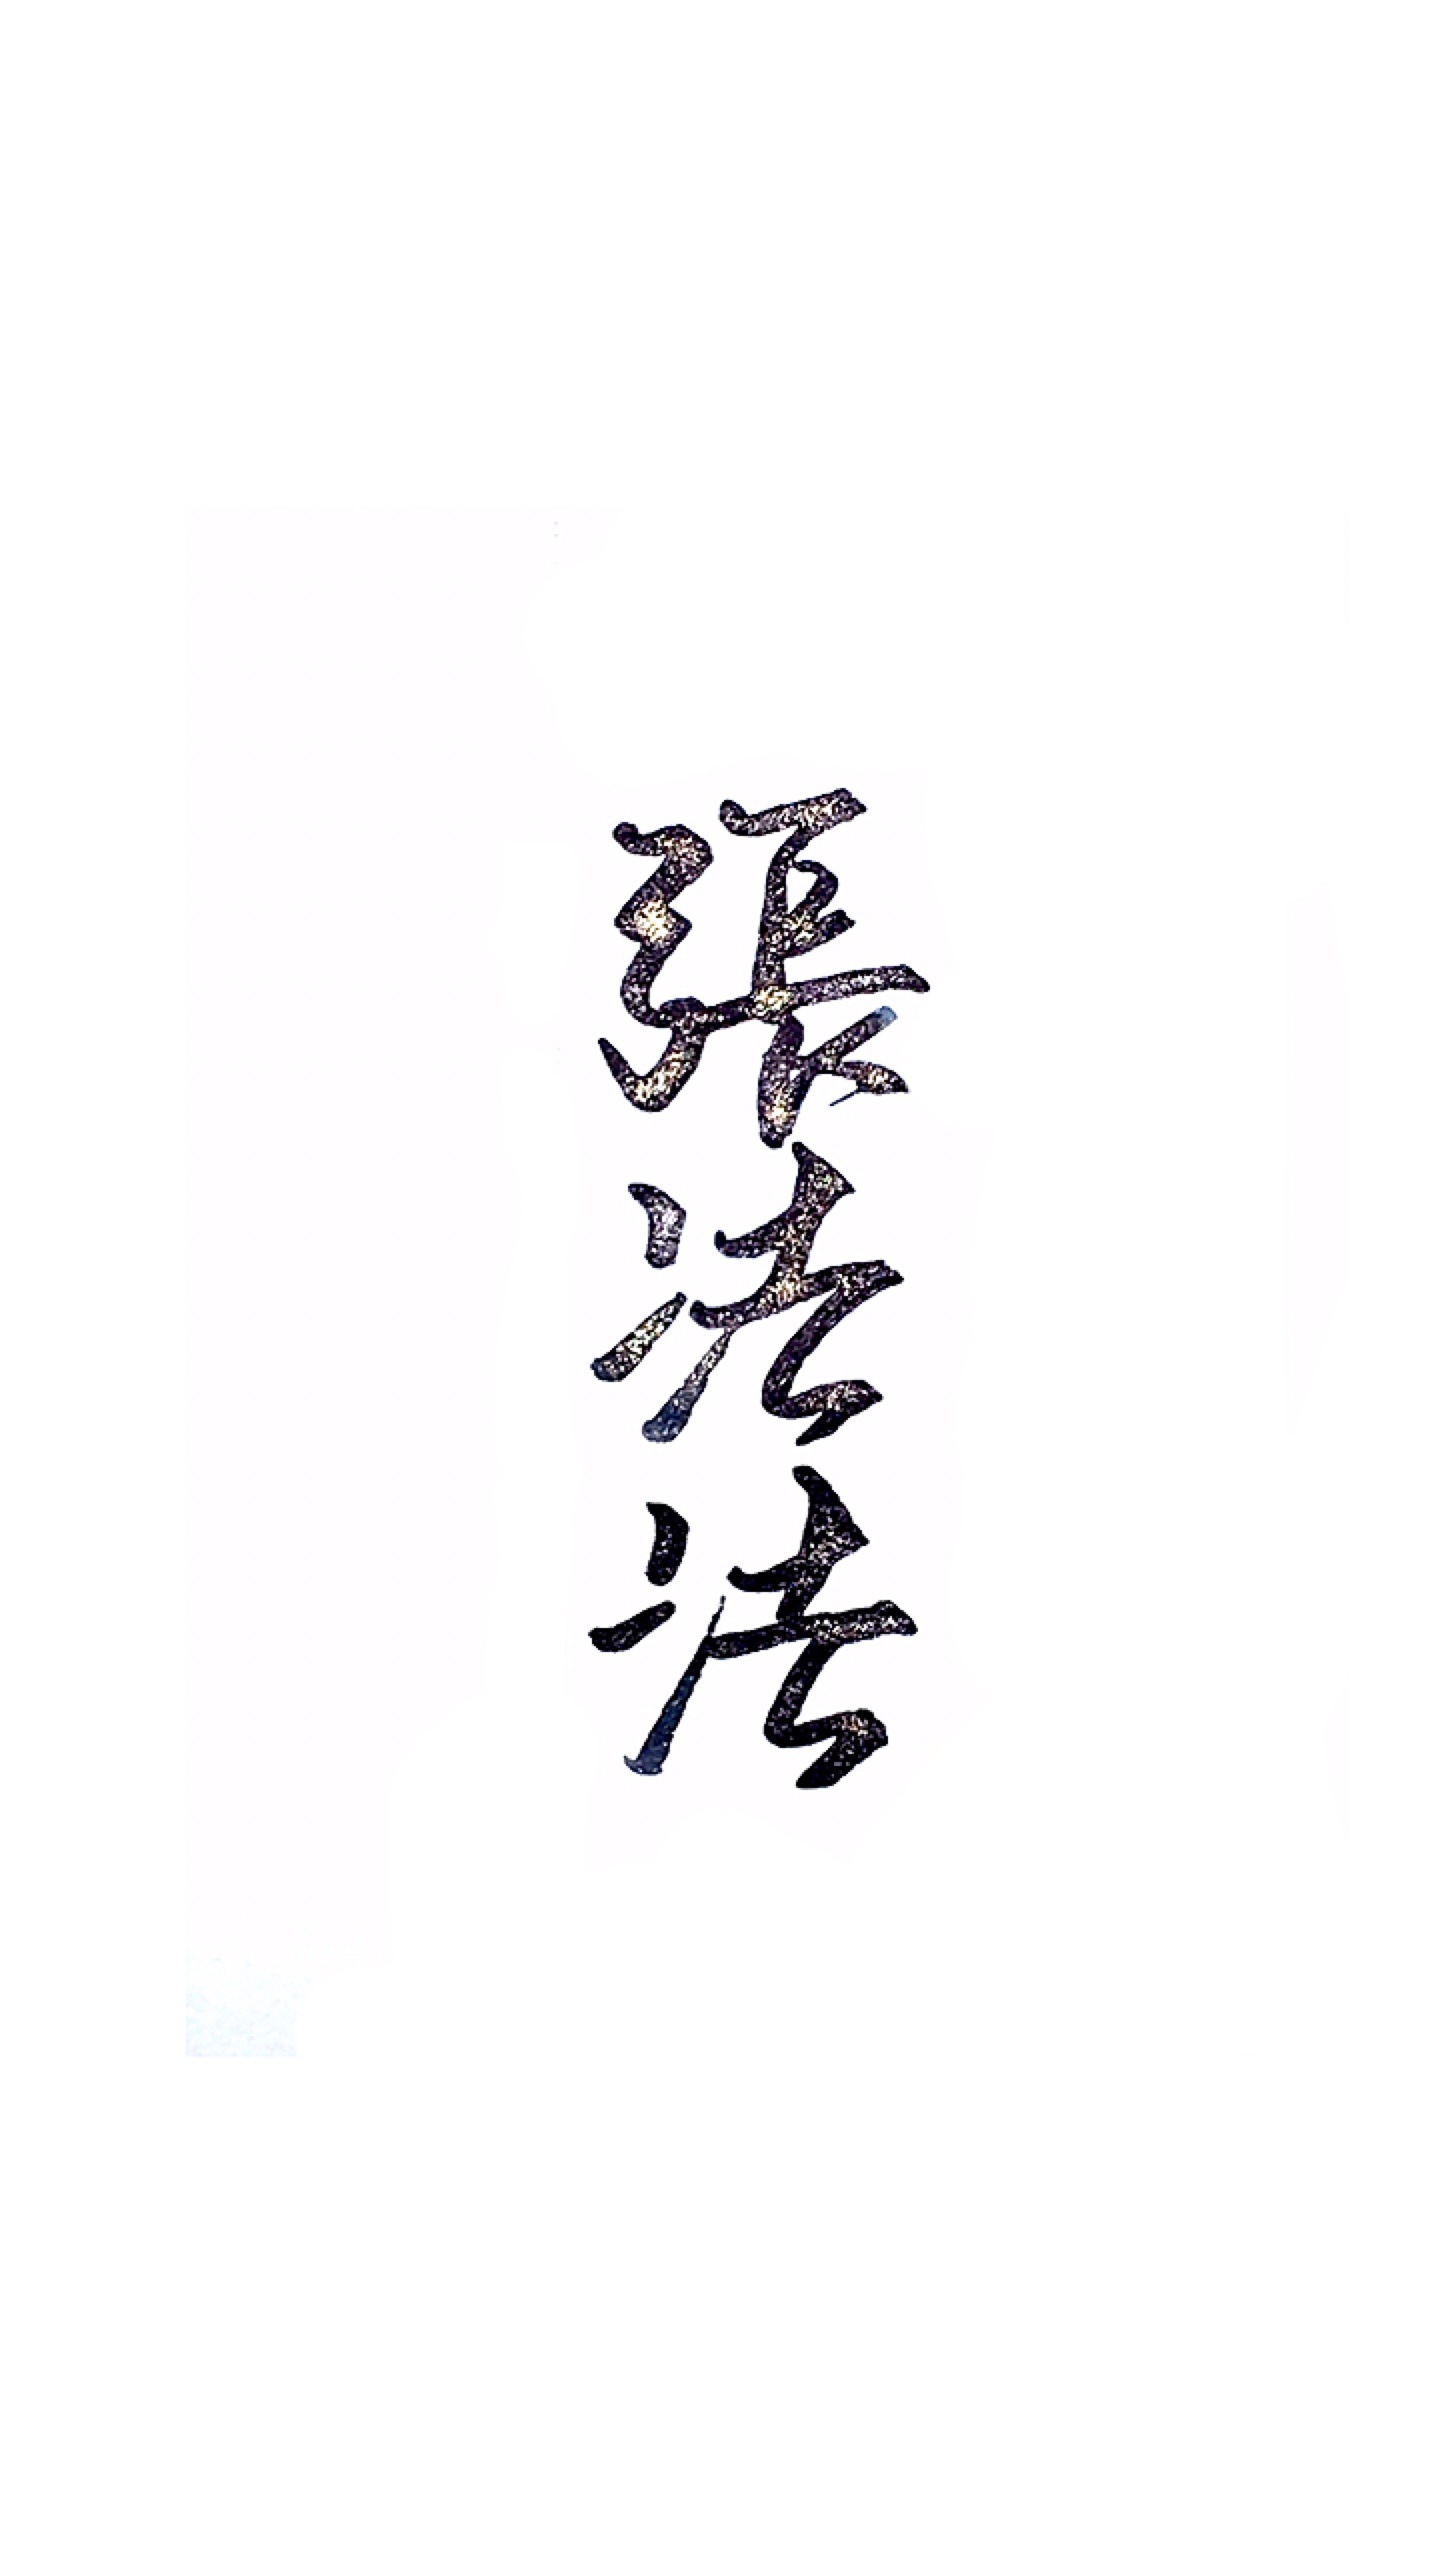 張法法